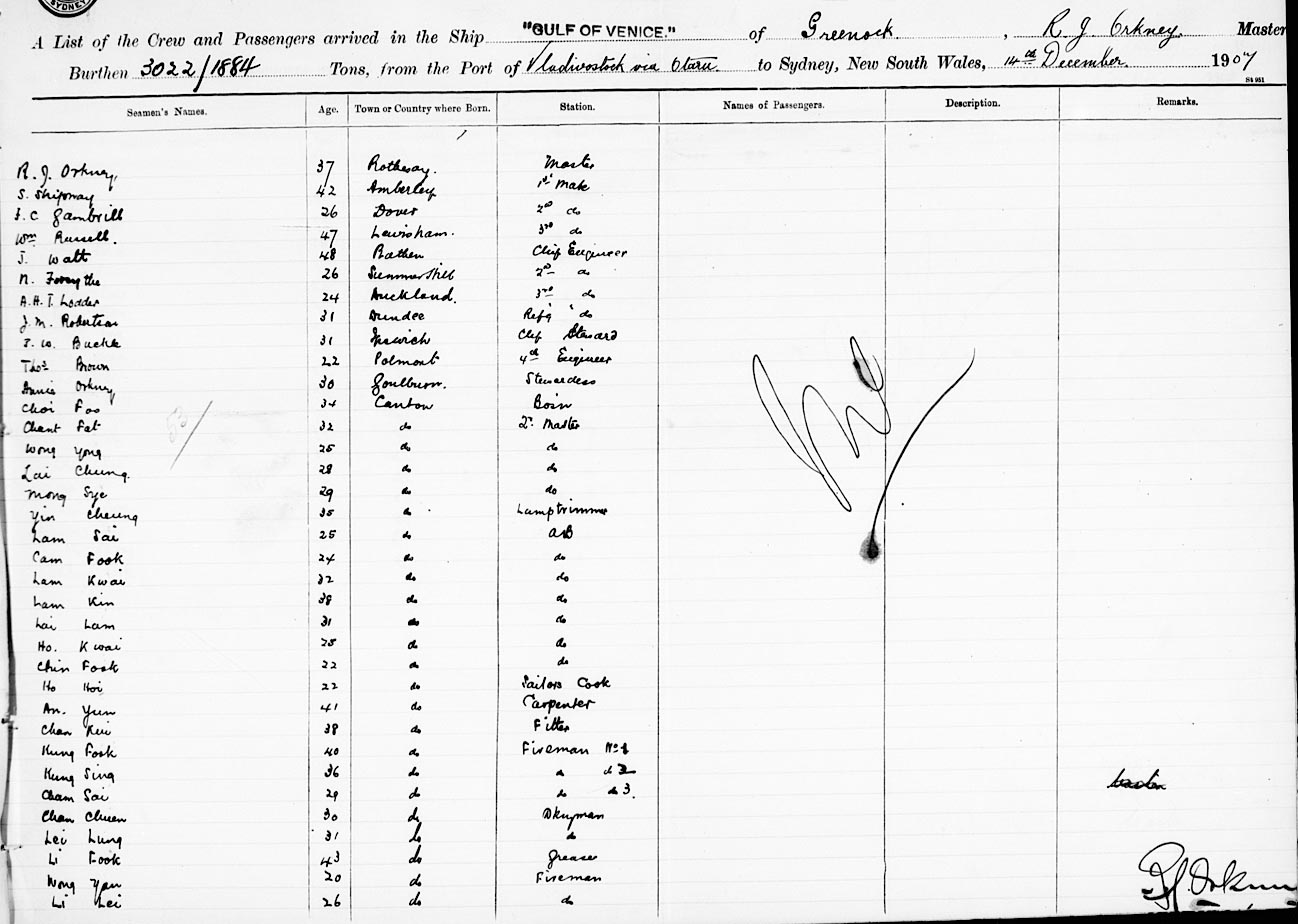 SYDNEY
A List of the Crew and Passengers arrived in the Ship "GULF OF VENICE." of Greenock, R. J. Orkney. Master
Burthen 3022/1884 Tons, from the Port of Vladivostock via Otaru. to Sydney, New South Wales, 14th December. 1907
Seamen's Names. Age. Town or Country where Born. Station. Names of Passengers. Description. Remarks.
R. J. Orkney. 37 Rothesay. Master
S. Shipway 42 Amberley 1st Mate
C Gambrill 26 Dover 2nd do
Wm Russell. 47 Lewisham. 3rd do
J. Watt 48 Rathen Chief Engineer
N. Forsythe 26 Summerhill 2nd do
A.H.T. Lodder 24 Auckland. 3rd do
J. M. Robertson 31 Dundee Refg do
W. Buckle 31 Ipswich Chf Steward
Thos Brown 22 Polmont 4th Engineer
Annie Orkney 30 Goulburn. Stewardess
Choi Foo 34 Canton Bosn
Chant Fat 32 do 2r Master
Wong Yong 25 do do
Lai Chung. 28 do do
Mong Sye 29 do do
Yin Cheung 35 do Lamptrimmer
Lam Sai 25 do AB
Cam Fook 24 do do
Lam Kwai 32 do do
Lam Kin 38 do do
Lai Lam 31 do do
Ho. Kwai 25 do do
Chin Fook 22 do do
Ho Hoi 22 do Sailors Cook
An. Yun 41 do Carpenter
Chan Kui 38 do Fitter
Kung Fook 40 do Fireman No 1
Kung Sing 36 do do do 2
Cham Sai 29 do do do 3.
Chan Chuen 30 do Dkyman
Lei Lung 31 do do
Li Fook 43 do Greaser
Wong Yau 20 do Fireman
Li Lei 26 do do
R.J. Orkney